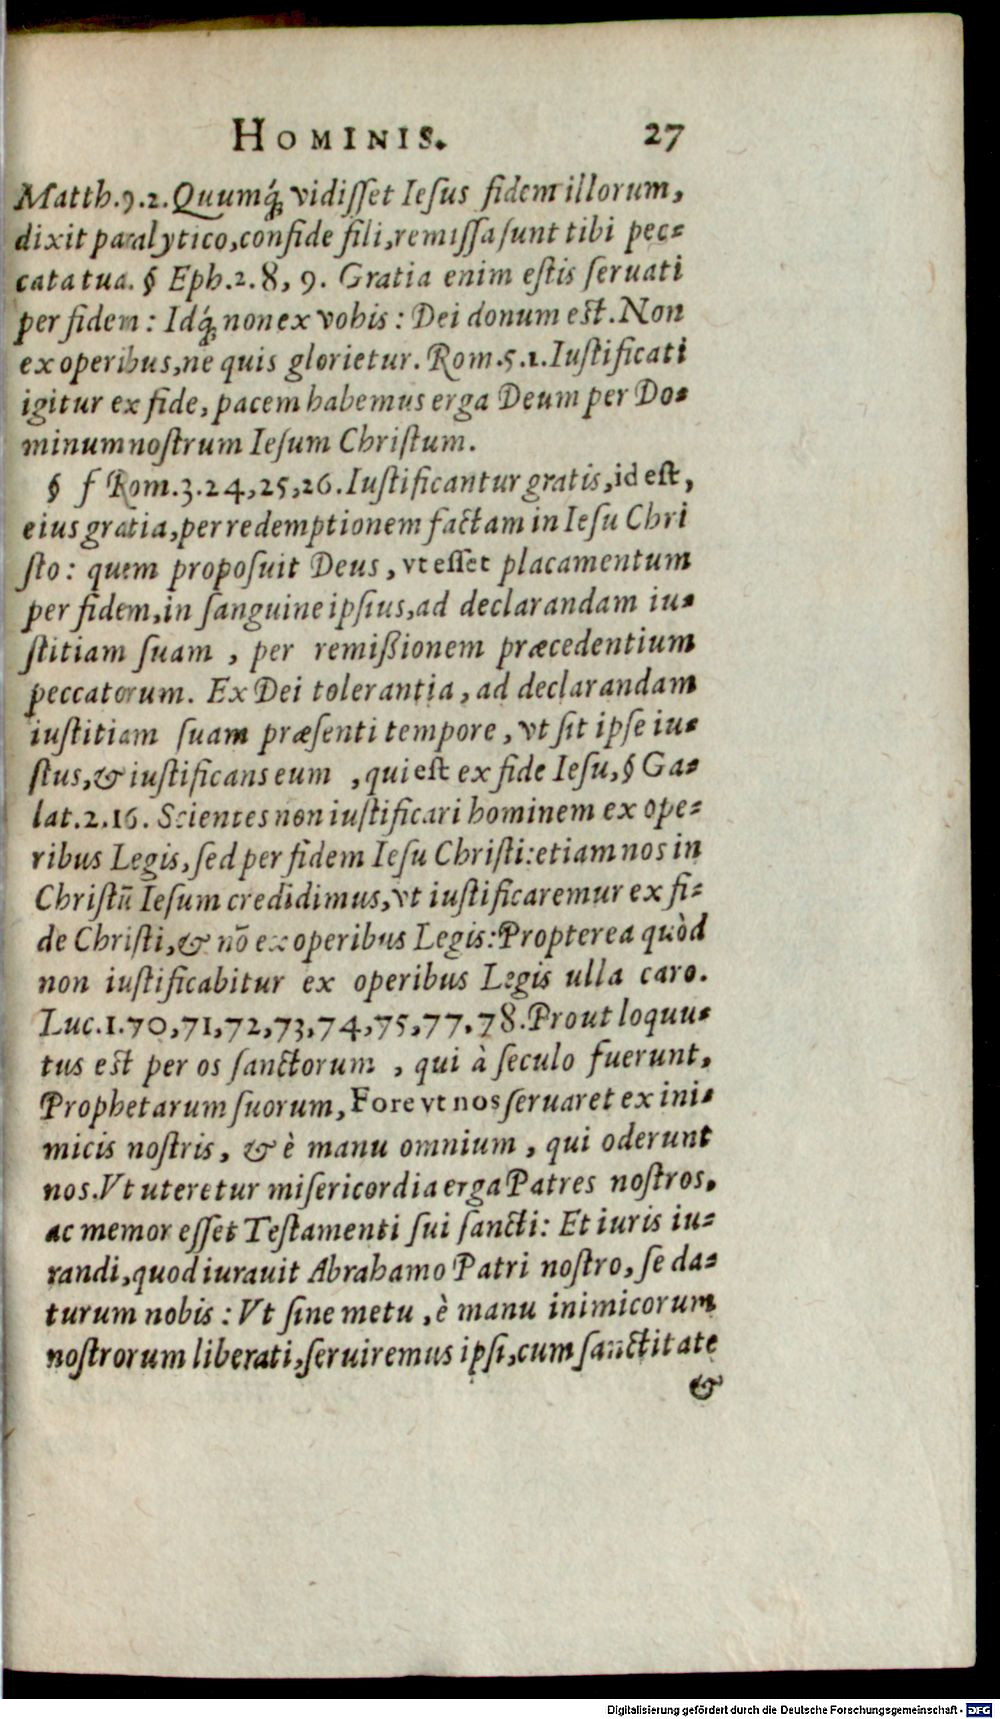 HOMINIS. 27
Matth.9.2. Quumq́; vidiſſet Ieſus fidem illorum,
dixit paralytico, confide fili, remiſſa ſunt tibi pec-
cata tua. § Eph.2.8, 9. Gratia enim eſtis ſeruati
per fidem: Idq́; non ex vobis: Dei donum eſt. Non
ex operibus, ne quis glorietur. Rom.5.1. Iuſtificati
igitur ex fide, pacem habemus erga Deum per Do-
minum noſtrum Ieſum Chriſtum.
§ f Rom.3.24,25,26. Iuſtificantur gratis, id eſt,
eius gratia, per redemptionem factam in Ieſu Chri
ſto: quem propoſuit Deus, vt eſſet placamentum
per fidem, in ſanguine ipſius, ad declarandam iu-
ſtitiam ſuam, per remißionem præcedentium
peccatorum. Ex Dei tolerantia, ad declarandam
iuſtitiam ſuam præſenti tempore, vt ſit ipſe iu-
ſtus, & iuſtificans eum, qui eſt ex fide Ieſu, § Ga-
lat.2.16. Scientes non iuſtificari hominem ex ope-
ribus Legis, ſed per fidem Ieſu Chriſti: etiam nos in
Chriſtū Ieſum credidimus, vt iuſtificaremur ex fi-
de Chriſti, & nō ex operibus Legis: Propterea quòd
non iuſtificabitur ex operibus Legis ulla caro.
Luc.1.70,71,72,73,74,75,77,78. Prout loquu-
tus eſt per os ſanctorum, qui à ſeculo fuerunt,
Prophetarum ſuorum, Fore vt nos ſeruaret ex ini-
micis noſtris, & è manu omnium, qui oderunt
nos. Vt uteretur miſericordia erga Patres noſtros,
ac memor eſſet Teſtamenti ſui ſancti: Et iuris iu-
randi, quod iurauit Abrahamo Patri noſtro, ſe da-
turum nobis: Vt ſine metu, è manu inimicorum
noſtrorum liberati, ſeruiremus ipſi, cum ſanctitate
&
Digitalisierung gefördert durch die Deutsche Forschungsgemeinschaft - DFG